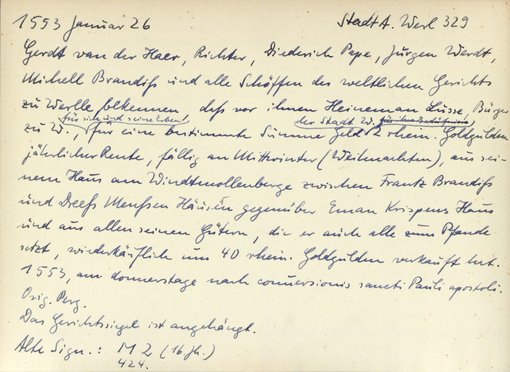 1553 Januar 26 StadtA. Werl 329
Gerdt van der Haer, Richter, Diederich Pape, Jürgen Werdt,
Michell Brandiss und alle Schöffen des weltlichen Gerichts
zu Werlle bekennen, dass vor ihnen Heineman Lusse, Bürger
für sich und seine Erben der Stadt W.
zu W., für eine bestimmte Summe Geld 2 rhein. Goldgulden
jährlicher Rente, fällig am Mittwinter (Weihnachten), aus sei-
nem Haus am Windtmollenberge zwischen Frantz Brandiss
und Dreess Menssen Häusern gegenüber Eman Krispens Haus
und aus allen seinen Gütern, die er auch alle zum Pfande
setzt, wiederkäuflich um 40 rhein. Goldgulden verkauft hat.
1553, am donnerstage nach conversionis sancti Pauli apostoli.
Orig. Perg.
Das Gerichtssiegel ist angehängt.
Alte Sign.: M 2 (16. Jh.)
424.